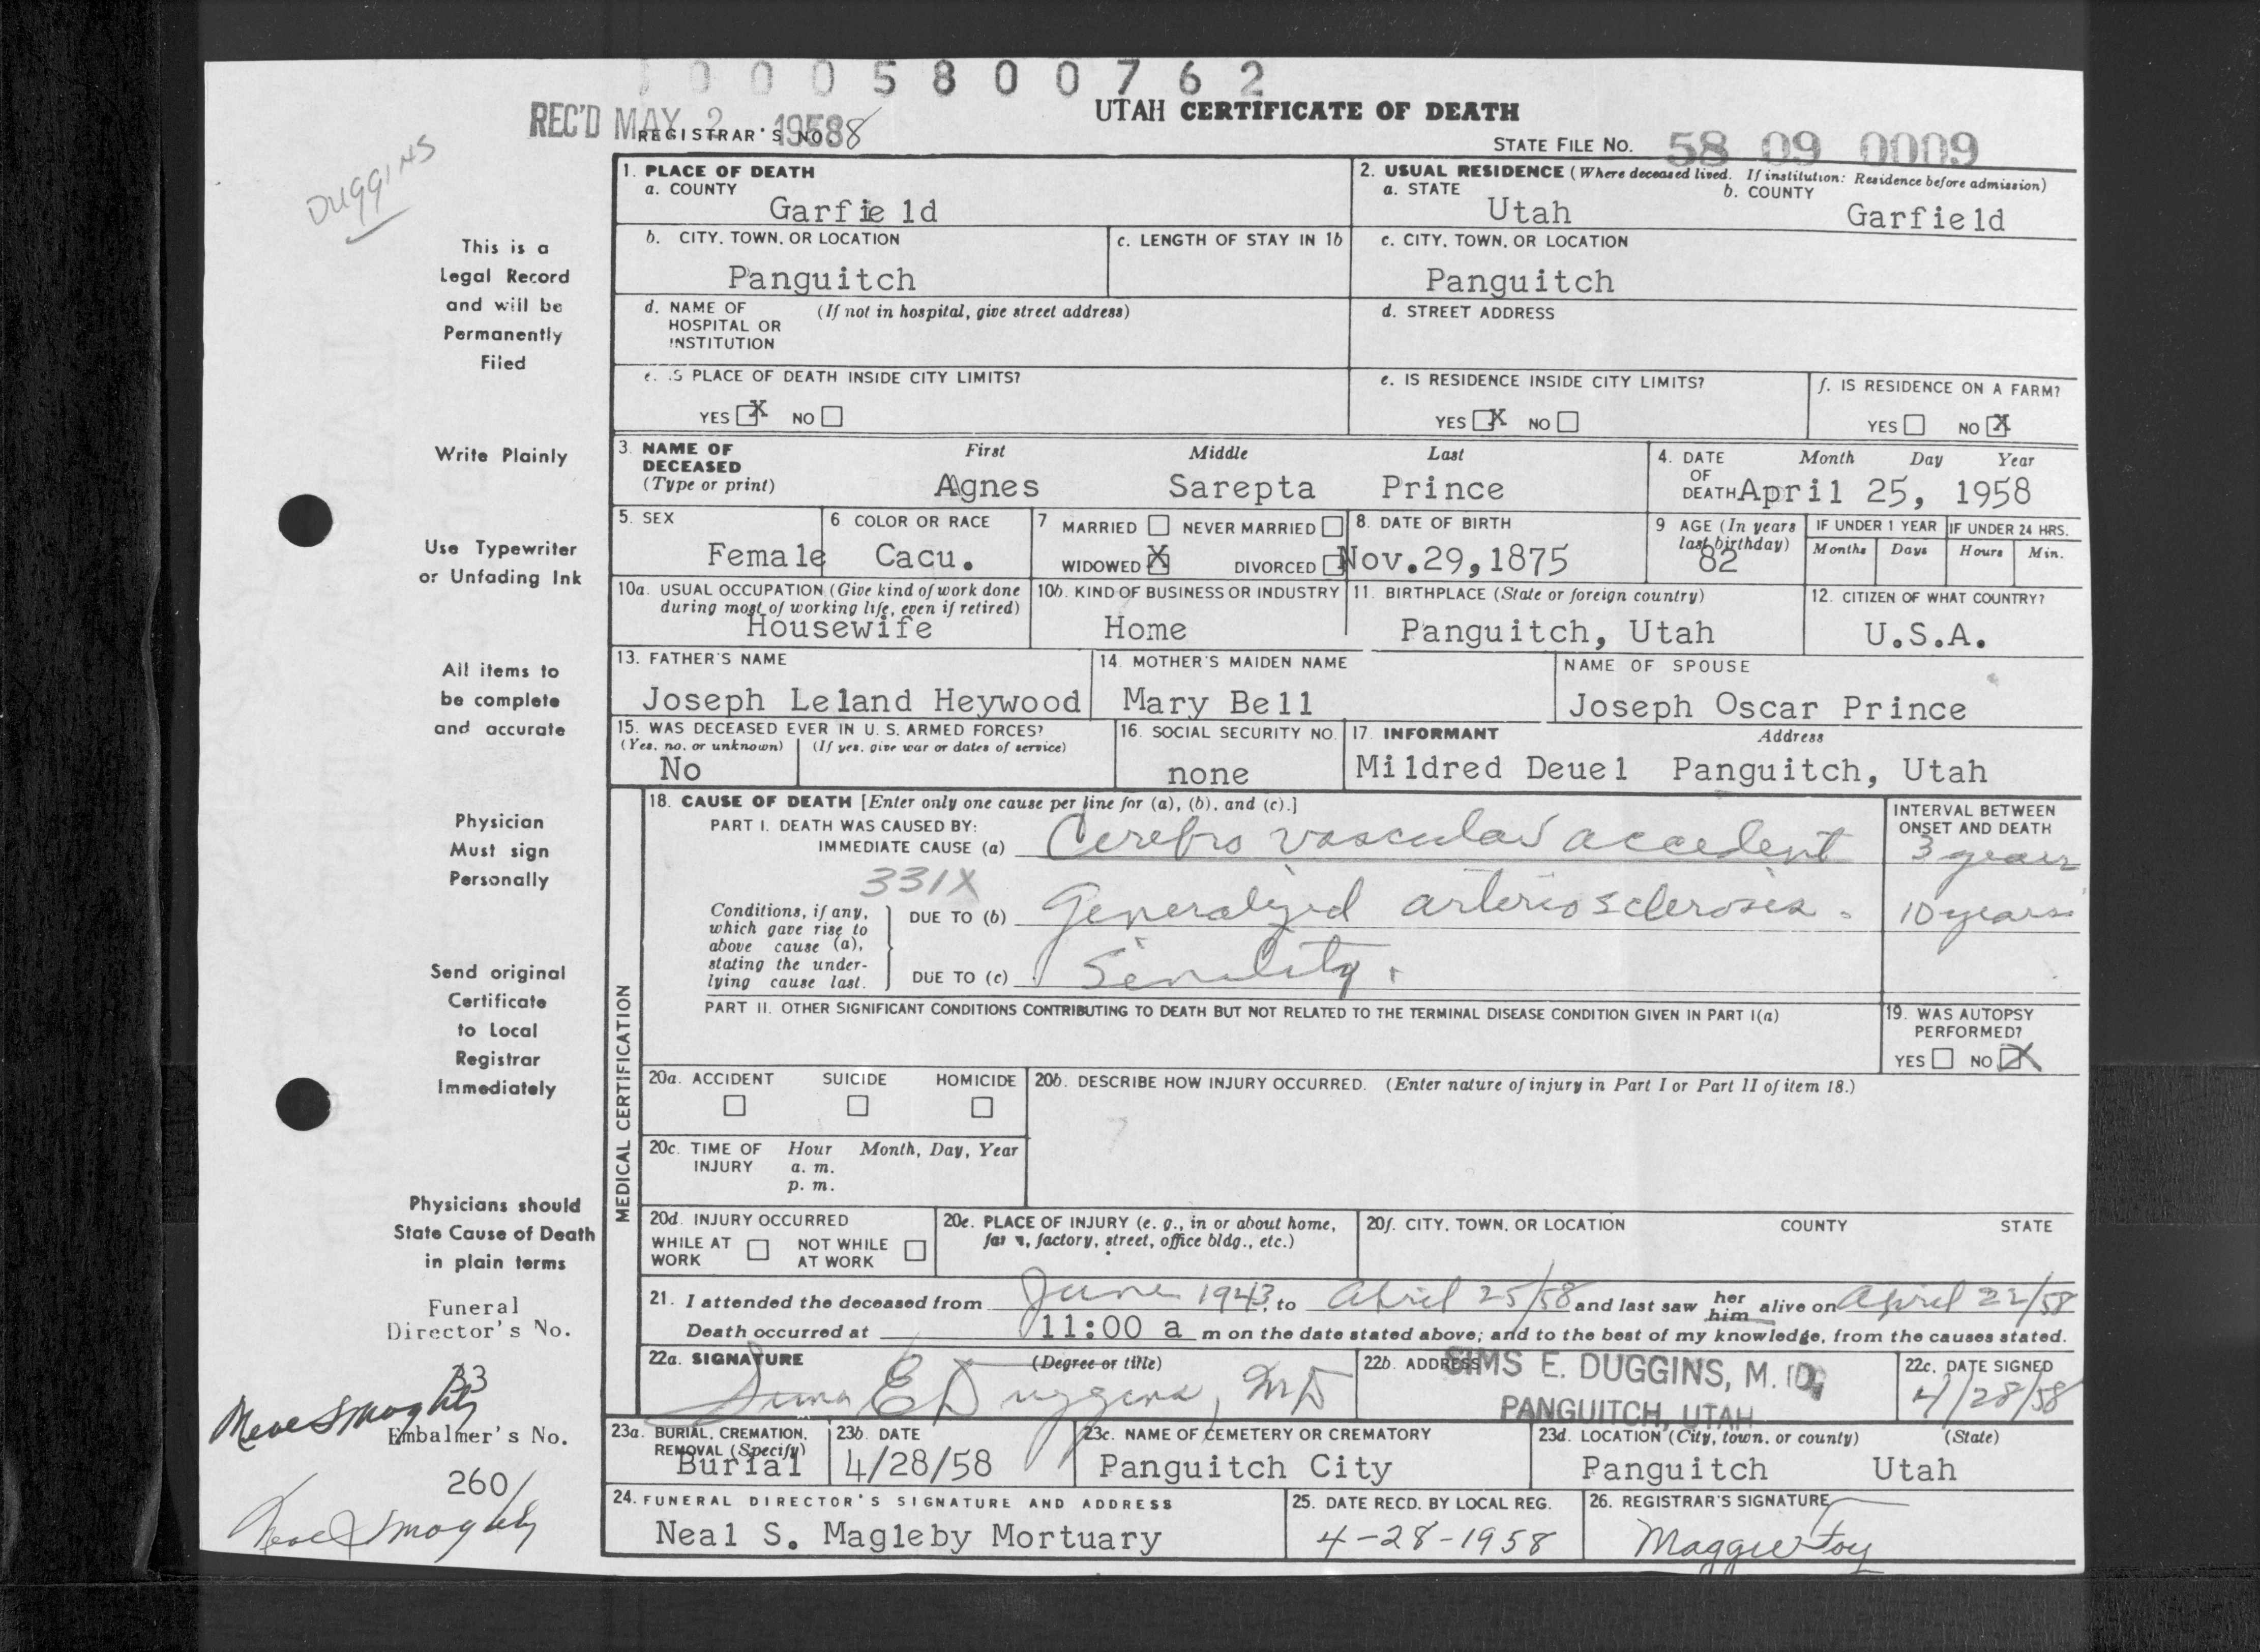 10005800762
REC'D MAY 2 1958
REGISTRAR'S NO 8
UTAH CERTIFICATE OF DEATH
STATE FILE NO. 58 09 0009
DUGGINS
This is a
Legal Record
and will be
Permanently
Filed
Write Plainly
Use Typewriter
or Unfading Ink
All items to
be complete
and accurate
Physician
Must sign
Personally
Send original
Certificate
to Local
Registrar
Immediately
Physicians should
State Cause of Death
in plain terms
Funeral
Director's No.
33
Embalmer's No.
260
1. PLACE OF DEATH
a. COUNTY
Garfield
2. USUAL RESIDENCE (Where deceased lived. If institution: Residence before admission)
a. STATE
Utah
b. COUNTY
Garfield
b. CITY, TOWN, OR LOCATION
Panguitch
c. LENGTH OF STAY IN 1b
c. CITY, TOWN, OR LOCATION
Panguitch
d. NAME OF (If not in hospital, give street address)
HOSPITAL OR
INSTITUTION
d. STREET ADDRESS
e. IS PLACE OF DEATH INSIDE CITY LIMITS?
YES X NO
e. IS RESIDENCE INSIDE CITY LIMITS?
YES X NO
f. IS RESIDENCE ON A FARM?
YES NO X
3. NAME OF DECEASED (Type or print)
First Middle Last
Agnes Sarepta Prince
4. DATE OF DEATH
Month Day Year
April 25, 1958
5. SEX
Female
6. COLOR OR RACE
Cacu.
7 MARRIED NEVER MARRIED
WIDOWED X DIVORCED
8. DATE OF BIRTH
Nov.29,1875
9 AGE (In years last birthday)
82
IF UNDER 1 YEAR
Months Days
IF UNDER 24 HRS.
Hours Min.
10a. USUAL OCCUPATION (Give kind of work done
during most of working life, even if retired)
Housewife
10b. KIND OF BUSINESS OR INDUSTRY
Home
11. BIRTHPLACE (State or foreign country)
Panguitch, Utah
12. CITIZEN OF WHAT COUNTRY?
U.S.A.
13. FATHER'S NAME
Joseph Leland Heywood
14. MOTHER'S MAIDEN NAME
Mary Bell
NAME OF SPOUSE
Joseph Oscar Prince
15. WAS DECEASED EVER IN U. S. ARMED FORCES?
(Yes, no, or unknown) (If yes, give war or dates of service)
No
16. SOCIAL SECURITY NO.
none
17. INFORMANT Address
Mildred Deuel Panguitch, Utah
MEDICAL CERTIFICATION
18. CAUSE OF DEATH [Enter only one cause per line for (a), (b), and (c).]
INTERVAL BETWEEN
ONSET AND DEATH
PART I. DEATH WAS CAUSED BY:
IMMEDIATE CAUSE (a) Cerebro vascular accident 3 years
331X
Conditions, if any,
which gave rise to
above cause (a),
stating the under-
lying cause last.
DUE TO (b) Generalized arteriosclerosis. 10 years
DUE TO (c) Senility.
PART II. OTHER SIGNIFICANT CONDITIONS CONTRIBUTING TO DEATH BUT NOT RELATED TO THE TERMINAL DISEASE CONDITION GIVEN IN PART I(a)
19. WAS AUTOPSY
PERFORMED?
YES NO X
20a. ACCIDENT SUICIDE HOMICIDE
20b. DESCRIBE HOW INJURY OCCURRED. (Enter nature of injury in Part I or Part II of item 18.)
20c. TIME OF INJURY
Hour Month, Day, Year
a. m.
p. m.
20d. INJURY OCCURRED
WHILE AT WORK NOT WHILE AT WORK
20e. PLACE OF INJURY (e. g., in or about home,
farm, factory, street, office bldg., etc.)
20f. CITY, TOWN, OR LOCATION COUNTY STATE
21. I attended the deceased from June 1943, to April 25/58 and last saw her him alive on April 22/58
Death occurred at 11:00 a m on the date stated above; and to the best of my knowledge, from the causes stated.
22a. SIGNATURE (Degree or title)
Sims E Duggins, MD
22b. ADDRESS
SIMS E. DUGGINS, M. D.
PANGUITCH, UTAH
22c. DATE SIGNED
4/28/58
23a. BURIAL, CREMATION,
REMOVAL (Specify)
Burial
23b. DATE
4/28/58
23c. NAME OF CEMETERY OR CREMATORY
Panguitch City
23d. LOCATION (City, town, or county) (State)
Panguitch Utah
24. FUNERAL DIRECTOR'S SIGNATURE AND ADDRESS
Neal S. Magleby Mortuary
25. DATE RECD. BY LOCAL REG.
4-28-1958
26. REGISTRAR'S SIGNATURE
Maggie Foy